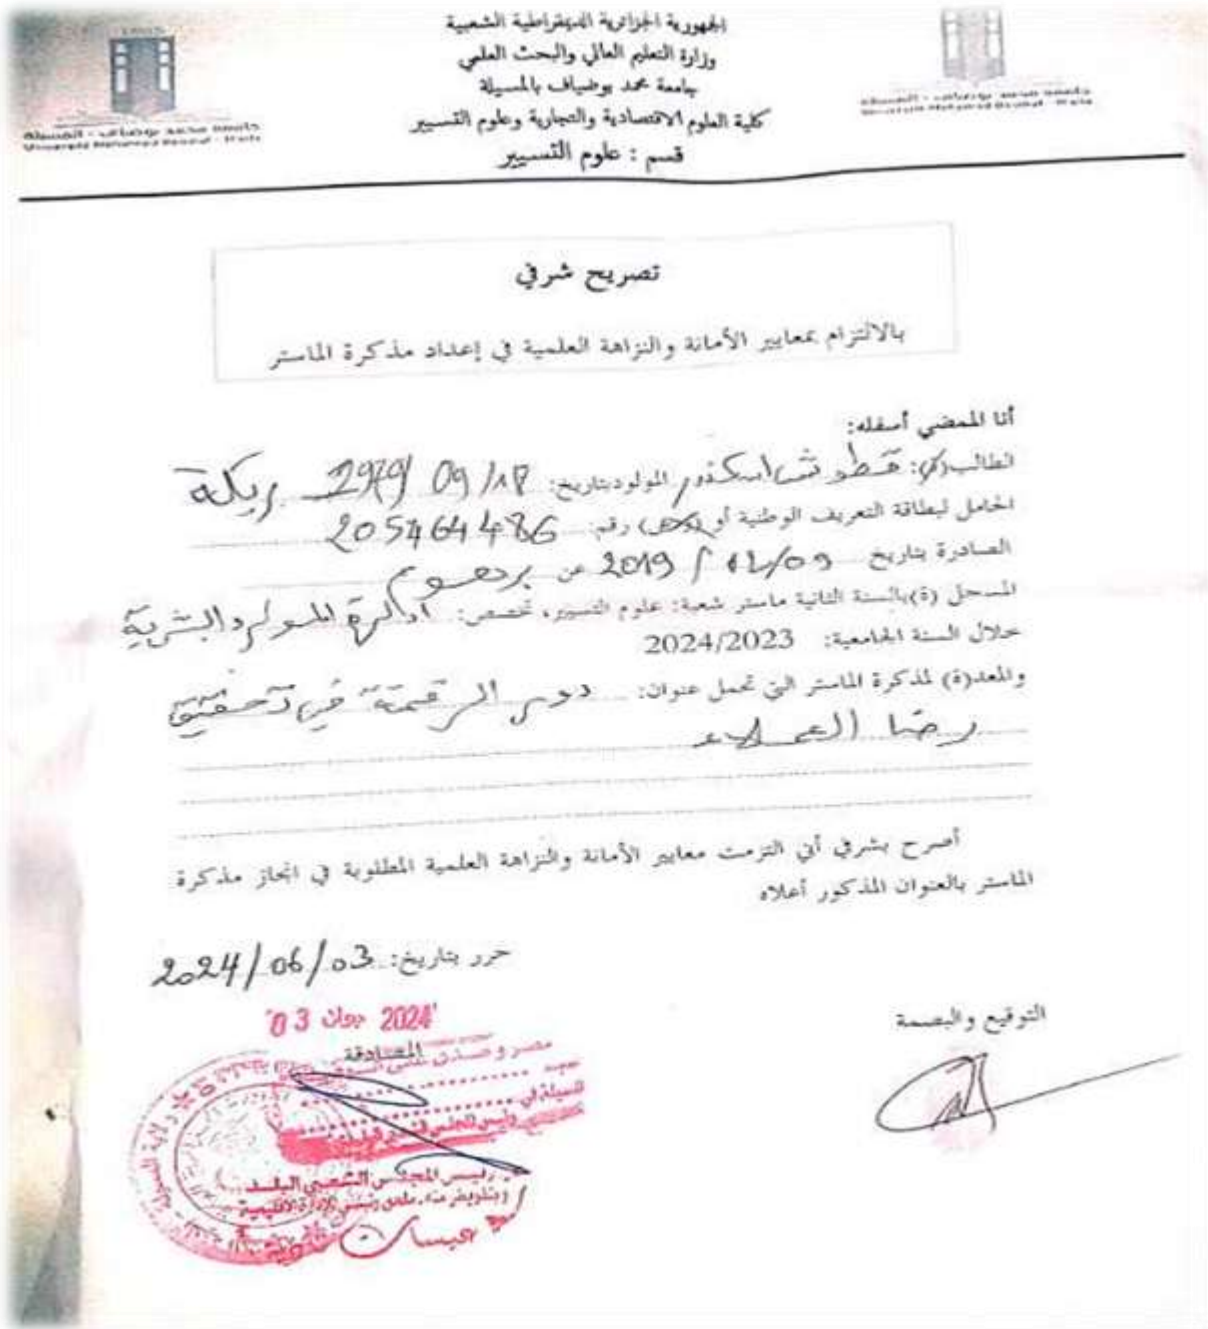 الجمهورية الجزائرية الديمقراطية الشعبية
وزارة التعليم العالي والبحث العلمي
جامعة محمد بوضياف بالمسيلة
كلية العلوم الاقتصادية والتجارية وعلوم التسيير
قسم : علوم التسيير
جامعة محمد بوضياف - المسيلة
Université Mohamed Boudiaf - M'sila
جامعة محمد بوضياف - المسيلة
Université Mohamed Boudiaf - M'sila
تصريح شرفي
بالالتزام بمعايير الأمانة والنزاهة العلمية في إعداد مذكرة الماستر
أنا الممضي أسفله:
الطالب(ة): قطوش اسكندر المولود بتاريخ: 09/18 بريكة
الحامل لبطاقة التعريف الوطنية أو رقم: 205464486
الصادرة بتاريخ 2019/12/09 عن برهوم
المسجل (ة) بالسنة الثانية ماستر شعبة: علوم التسيير، تخصص: ادارة الموارد البشرية
خلال السنة الجامعية: 2024/2023
والمعد(ة) لمذكرة الماستر التي تحمل عنوان: دور الرقمنة في تحقيق
رضا العملاء
أصرح بشرفي أني التزمت معايير الأمانة والنزاهة العلمية المطلوبة في انجاز مذكرة
الماستر بالعنوان المذكور أعلاه
حرر بتاريخ: 2024/06/03
03 جوان 2024
المصادقة
التوقيع والبصمة
رئيس المجلس الشعبي البلدي